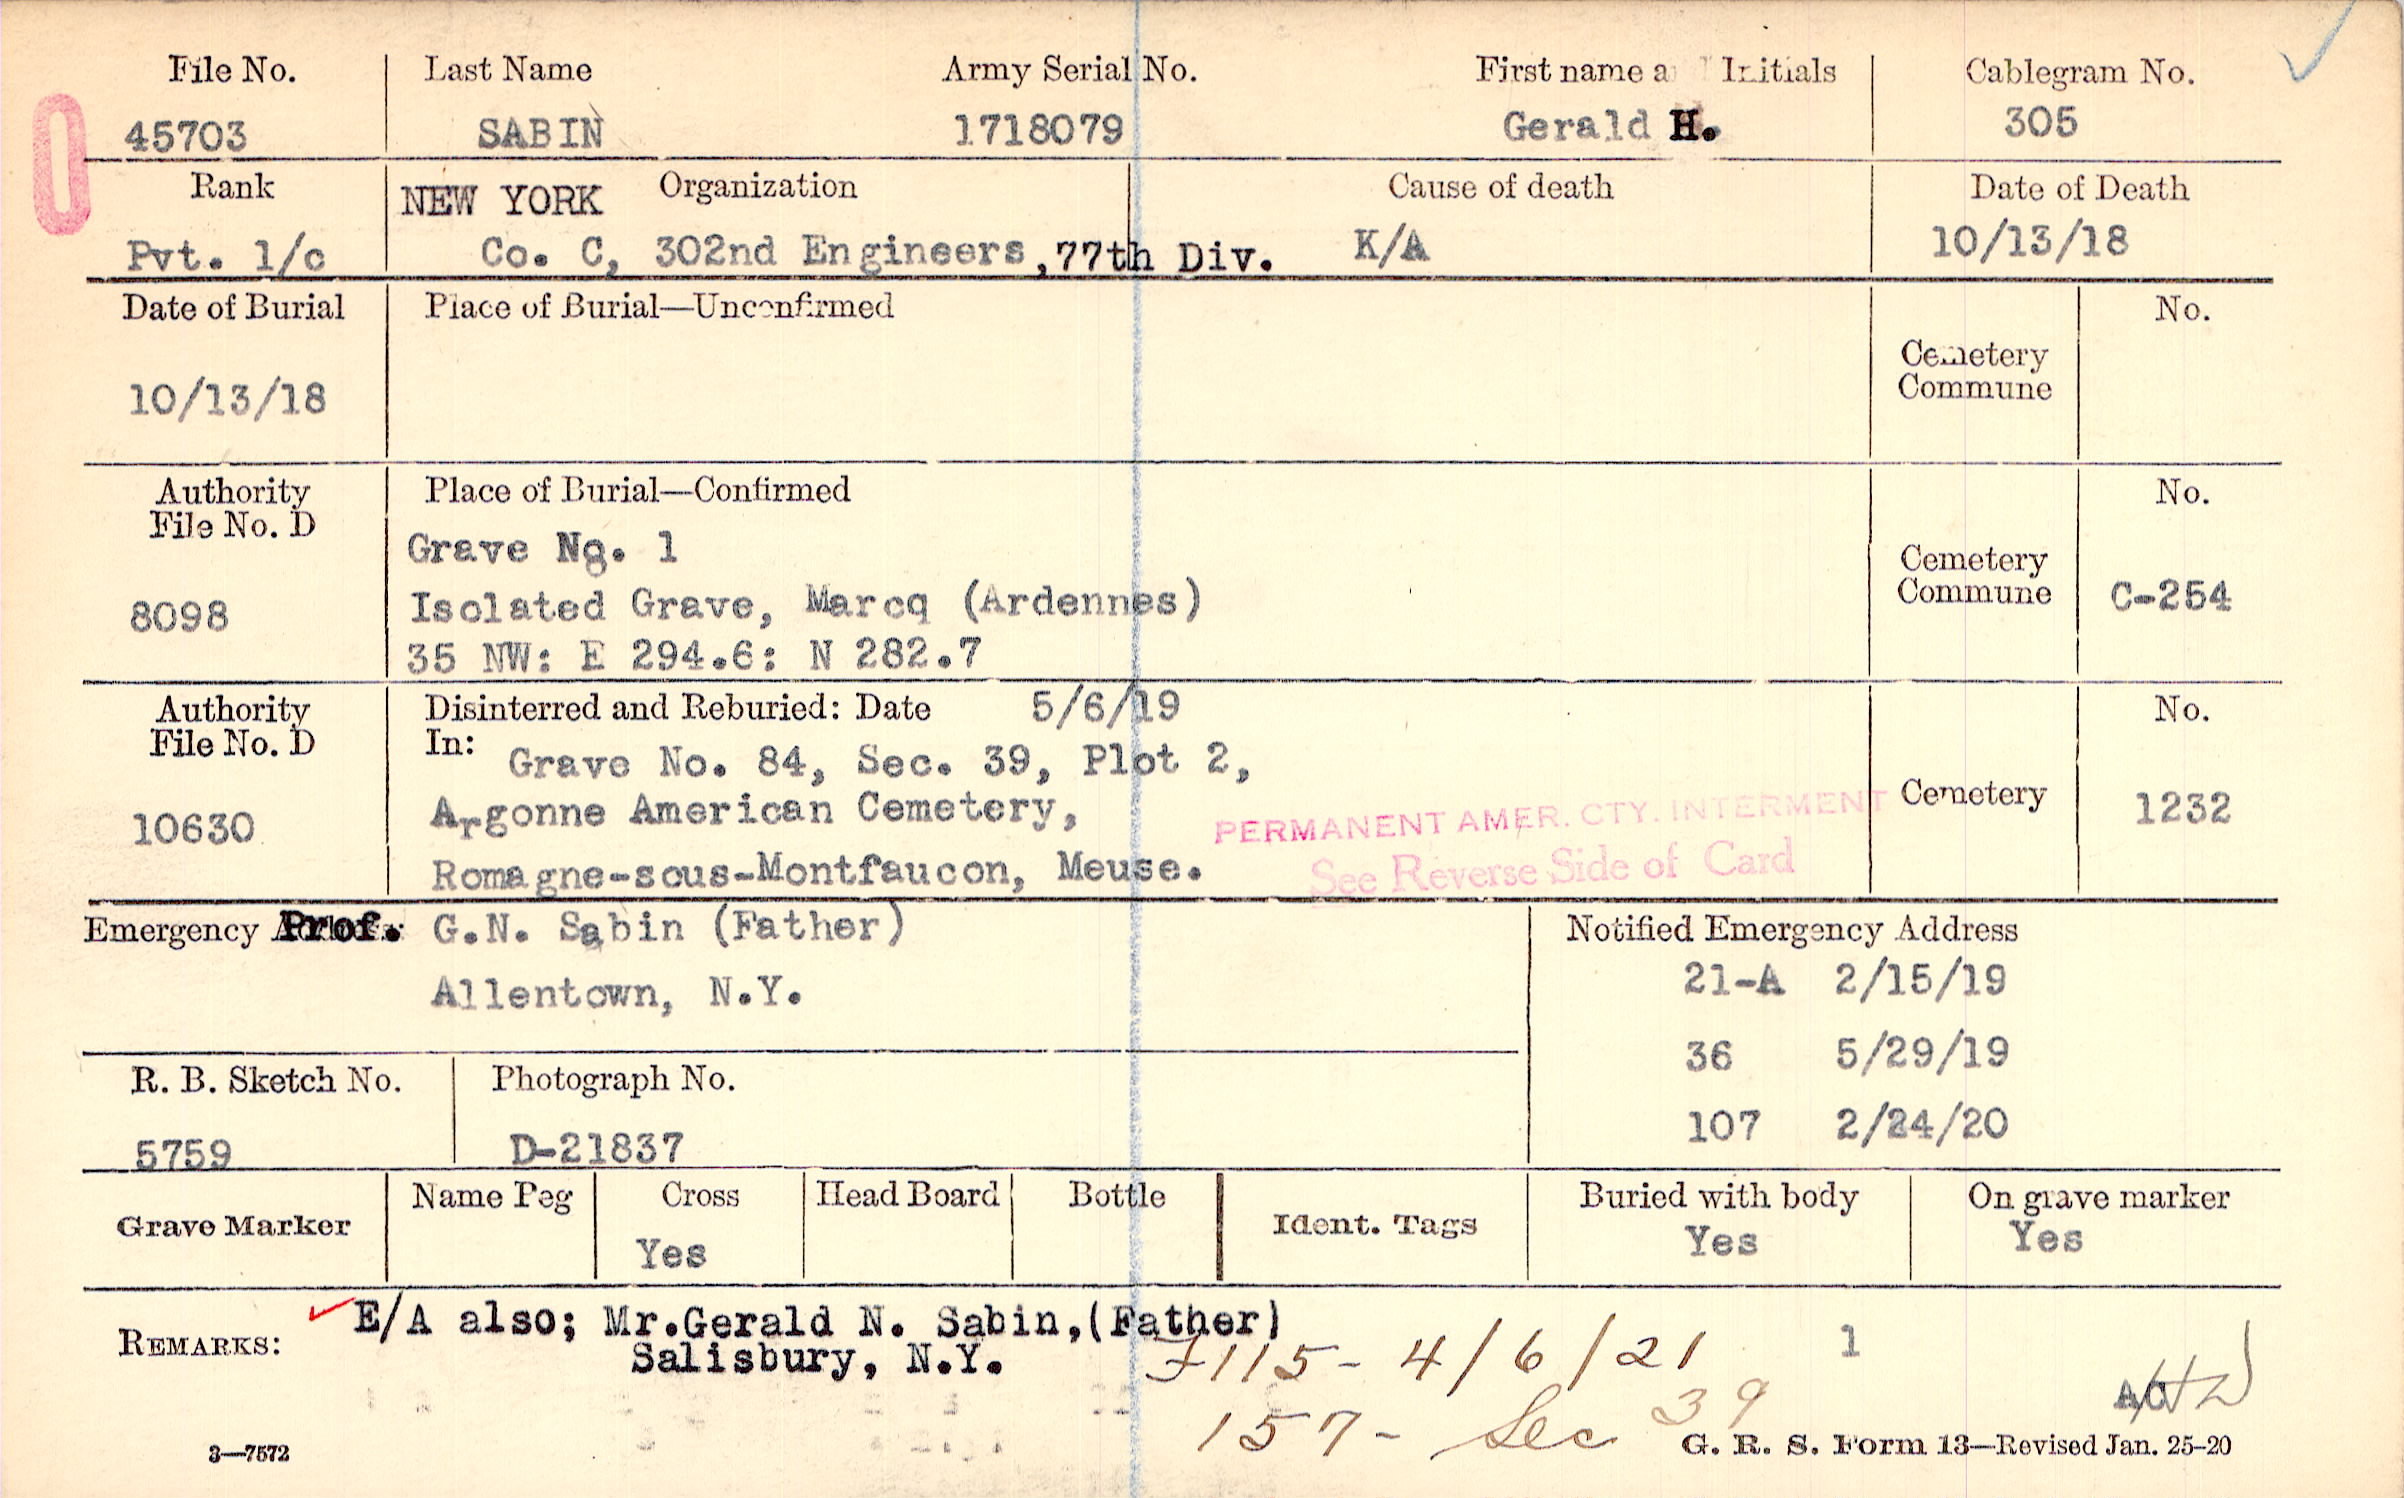 File No. Last Name Army Serial No. First name a Initials Cablegram No.
45703 SABIN 1718079 Gerald H. 305
Rank NEW YORK Organization Cause of death Date of Death
Pvt. 1/c Co. C, 302nd Engineers, 77th Div. K/A 10/13/18
Date of Burial Place of Burial—Unconfirmed No.
Cemetery
Commune
10/13/18
Authority Place of Burial—Confirmed No.
File No. D
Grave No. 1
Cemetery
8098 Isolated Grave, Marcq (Ardennes) Commune C-254
35 NW: E 294.6: N 282.7
Authority Disinterred and Reburied: Date 5/6/19 No.
File No. D In:
Grave No. 84, Sec. 39, Plot 2,
10630 Argonne American Cemetery, Cemetery 1232
PERMANENT AMER. CTY. INTERMENT
Romagne-sous-Montfaucon, Meuse. See Reverse Side of Card
Emergency Prof. G.N. Sabin (Father) Notified Emergency Address
Allentown, N.Y. 21-A 2/15/19
36 5/29/19
R. B. Sketch No. Photograph No.
107 2/24/20
5759 D-21837
Grave Marker Name Peg Cross Head Board Bottle Ident. Tags Buried with body On grave marker
Yes Yes Yes
REMARKS: E/A also; Mr.Gerald N. Sabin,(Father)
Salisbury, N.Y. 115- 4/6/21 1
157- Sec 39
3—7572 G. R. S. Form 13—Revised Jan. 25-20